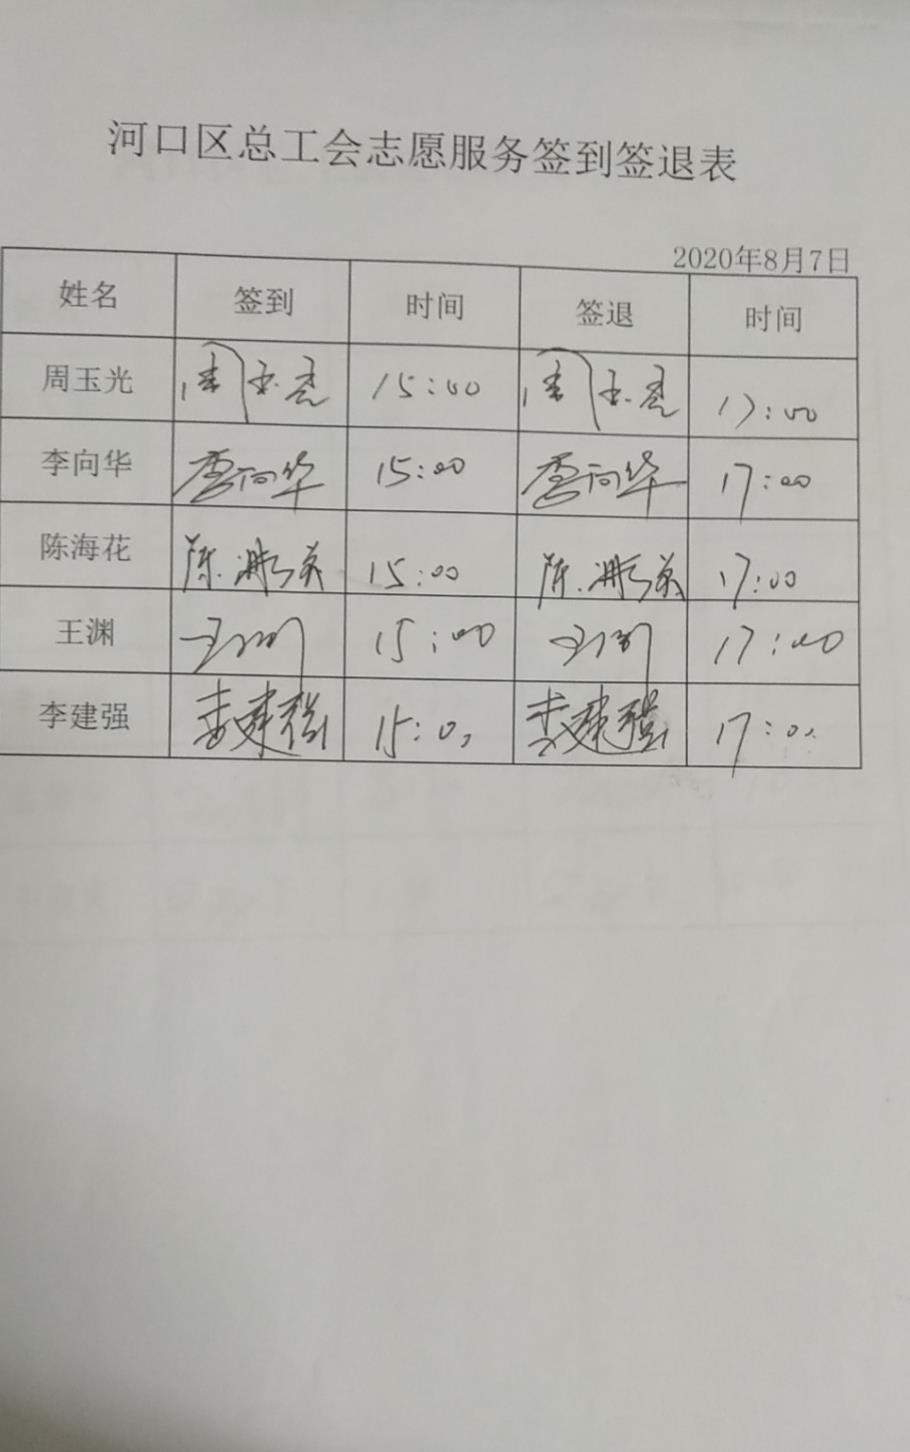 河口区总工会志愿服务签到签退表
2020年8月7日
姓名 签到 时间 签退 时间
周玉光 周玉光 15:00 周玉光 17:00
李向华 李向华 15:00 李向华 17:00
陈海花 陈海花 15:00 陈海花 17:00
王渊 王渊 15:00 王渊 17:00
李建强 李建强 15:00 李建强 17:00